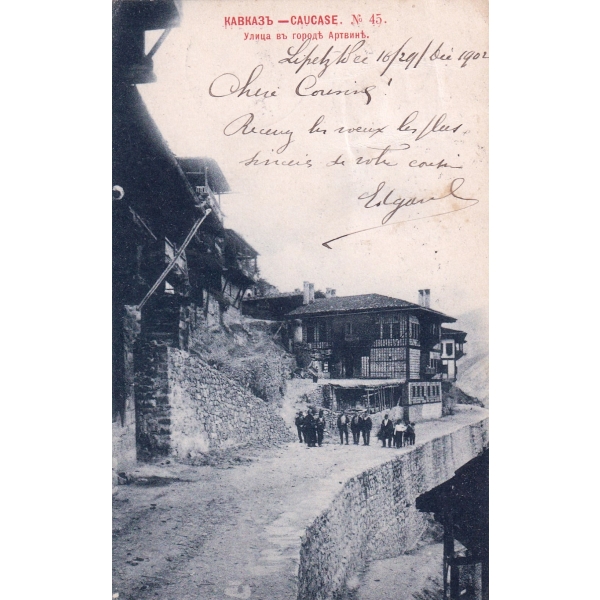 КАВКАЗЪ — CAUCASE. № 45.
Улица въ городѣ Артвинѣ.
16/29/Déc 1902
Chère Cousine!
Recevez les voeux les plus
sincères de votre cousin
Edgard